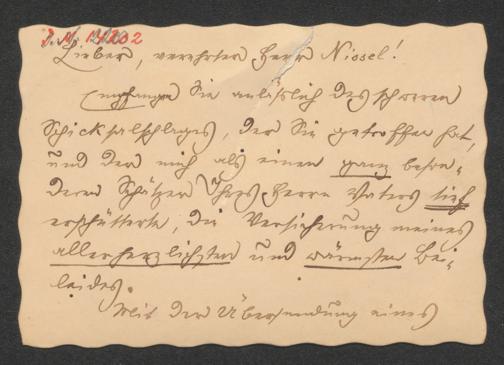 J. N. 14202
Lieber, verehrter Herr Niosel!
Empfangen Sie anläßlich des schweren
Schicksalschlages, der Sie getroffen hat,
und der mich als einen ganz beson-
deren Schätzer Ihres Herrn Vaters tief
erschütterte, die Versicherung meines
allerherzlichsten und wärmsten Bei-
leides.
Mit der Übersendung eines